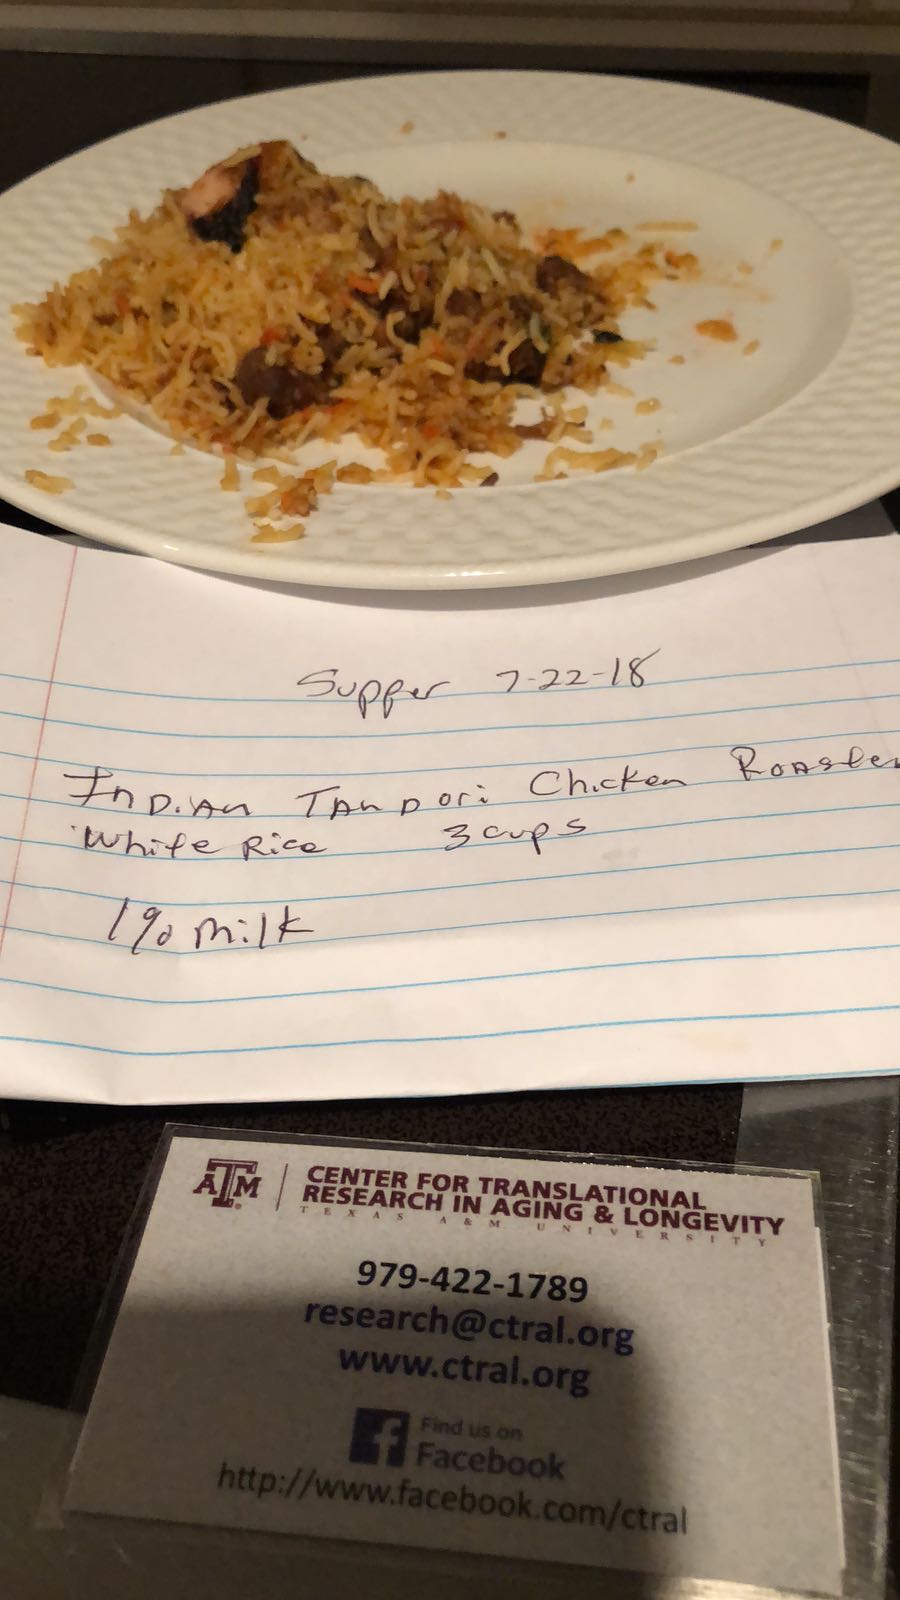 Supper 7-22-18
Indian Tandori Chicken Roasted
White Rice 3 cups
1% milk
ATM
CENTER FOR TRANSLATIONAL
RESEARCH IN AGING & LONGEVITY
TEXAS A&M UNIVERSITY
979-422-1789
research@ctral.org
www.ctral.org
f Find us on
Facebook
http://www.facebook.com/ctral